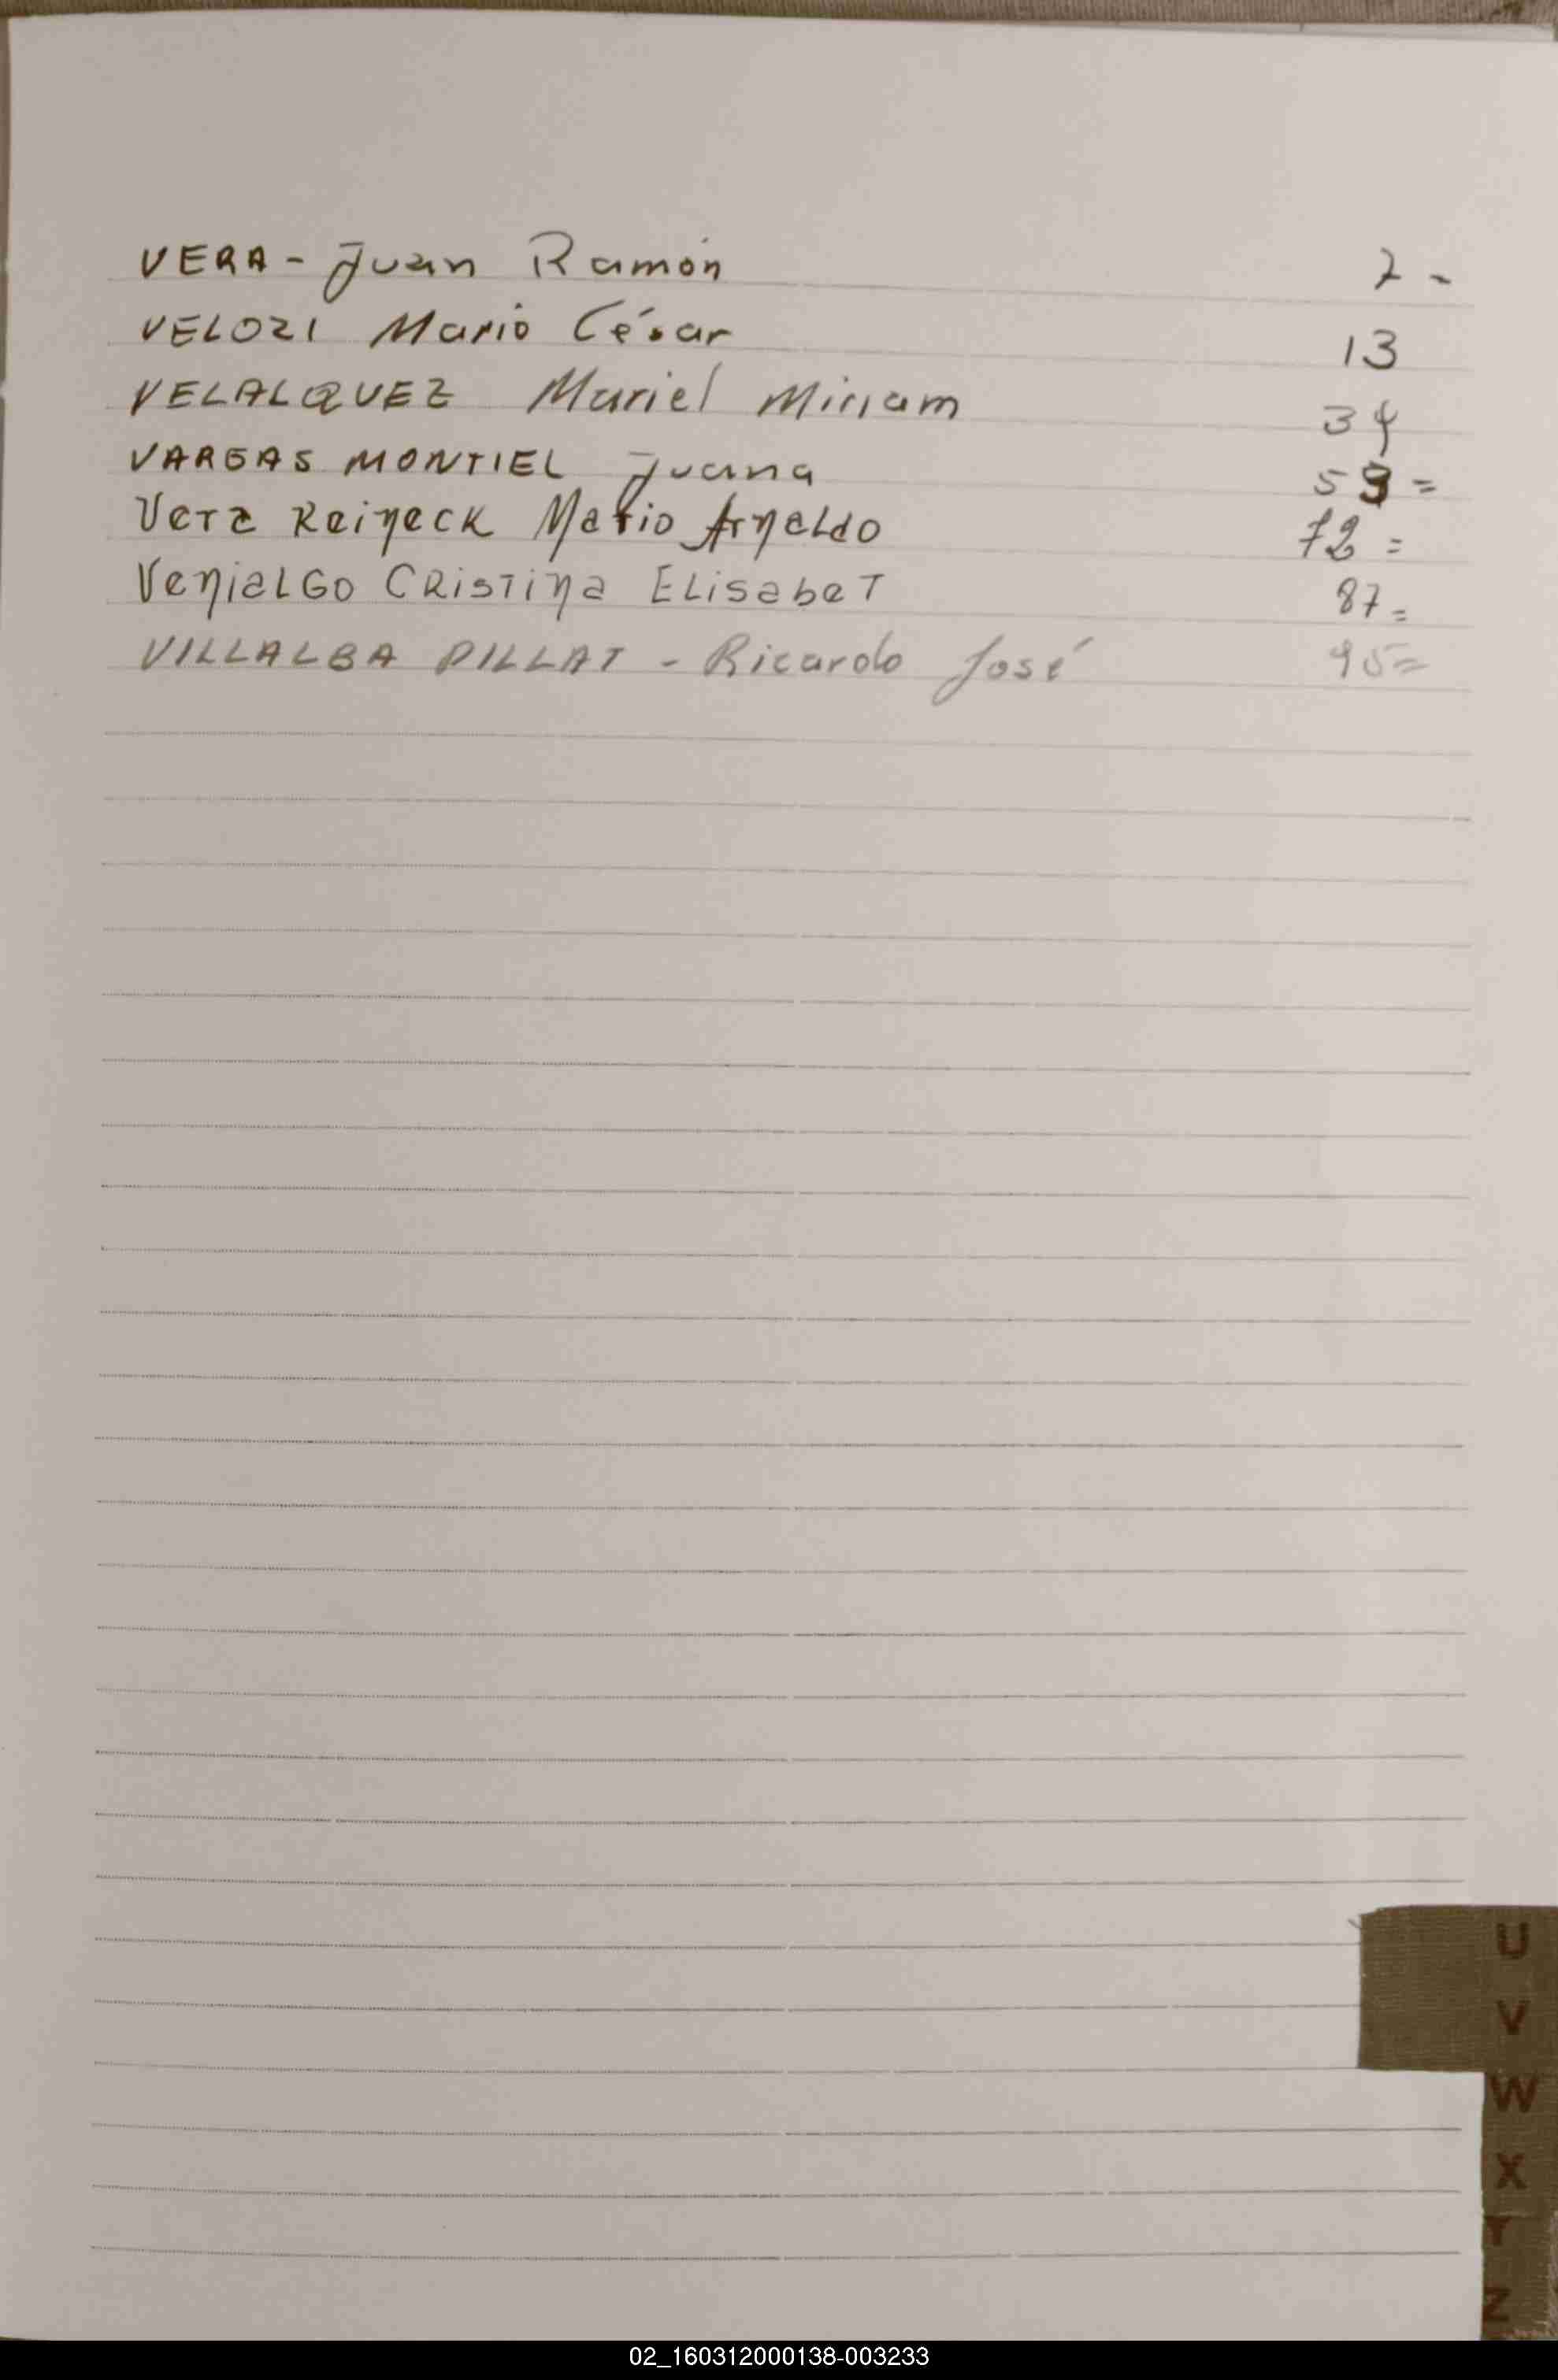 VERA - Juan Ramón 2 -
VELOZI Mario César 13
VELALQUEZ Mariel Miriam 34
VARGAS MONTIEL Juana 59 =
Vera Reineck Mario Arnaldo 72 =
VenialGO CRistina ELisabeT 87 =
VILLALBA PILLAT - Ricardo José 95 =
U
V
W
X
Y
Z
02_160312000138-003233